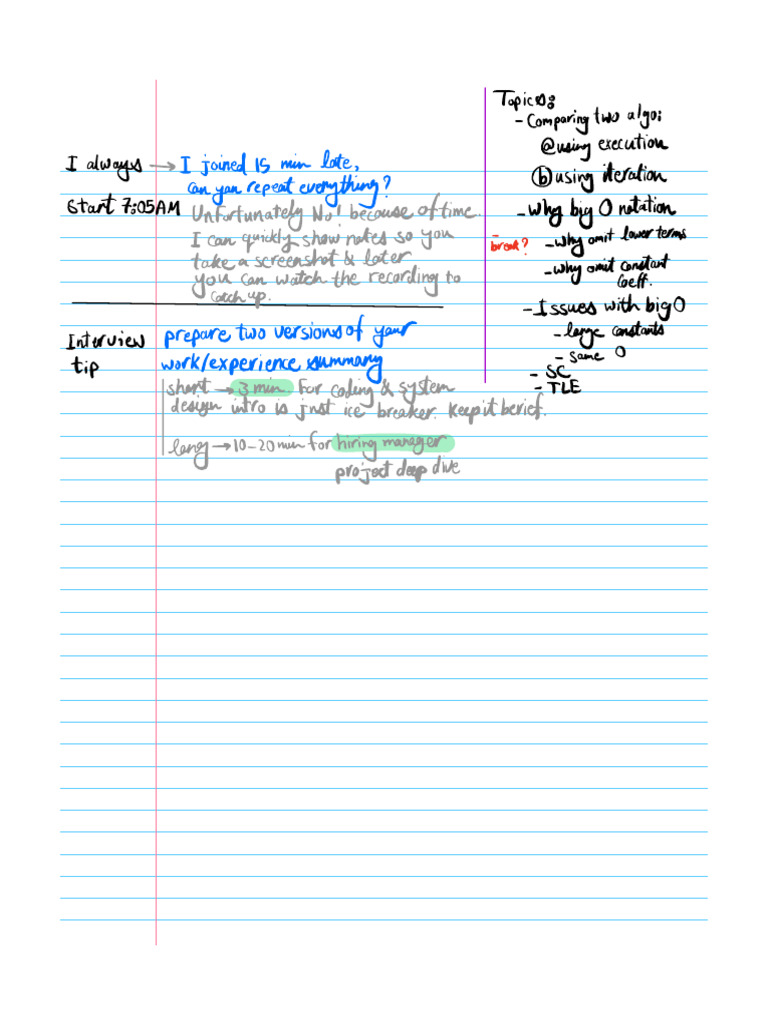 I always → I joined 15 min late,
can you repeat everything?
Start 7:05AM
Unfortunately No! because of time.
I can quickly show notes so you
take a screenshot & later
you can watch the recording to
catch up.
Interview tip
prepare two versions of your
work/experience summary
short → 3 min. For coding & system
design intro is just ice breaker. Keep it berief.
long → 10-20 min for hiring manager
project deep dive
Topics:
- Comparing two algo:
@ using execution
(b) using iteration
- Why big O notation
- break?
- Why omit lower terms
- Why omit constant
Coeff.
- Issues with big O
- large constants
- same O
- SC
- TLE